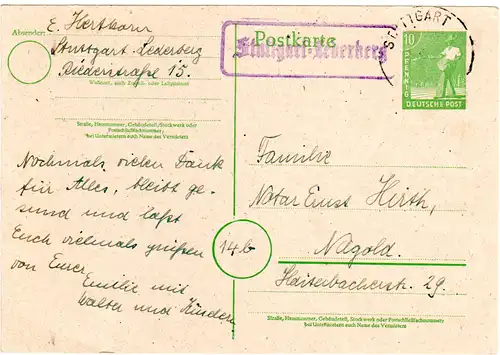 Absender:
E. Herthorn
Stuttgart-Lederberg
Riederstraße 15.
Wohnort, auch Zustell- oder Leitpostamt
Straße, Hausnummer, Gebäudeteil, Stockwerk oder
Postschließfachnummer;
bei Untermietern auch Name des Vermieters
Nochmals vielen Dank
für Alles, bleibt ge-
sund und laßt
Euch vielmals grüßen
von Eurer
Emilie mit
Walter und Kindern
Postkarte
STUTTGART
10
PFENNIG
DEUTSCHE POST
Familie
Notar Ernst Hirth,
14b
Nagold.
Haiterbacherstr. 29.
Straße, Hausnummer, Gebäudeteil, Stockwerk oder Postschließfachnummer;
bei Untermietern auch Name des Vermieters